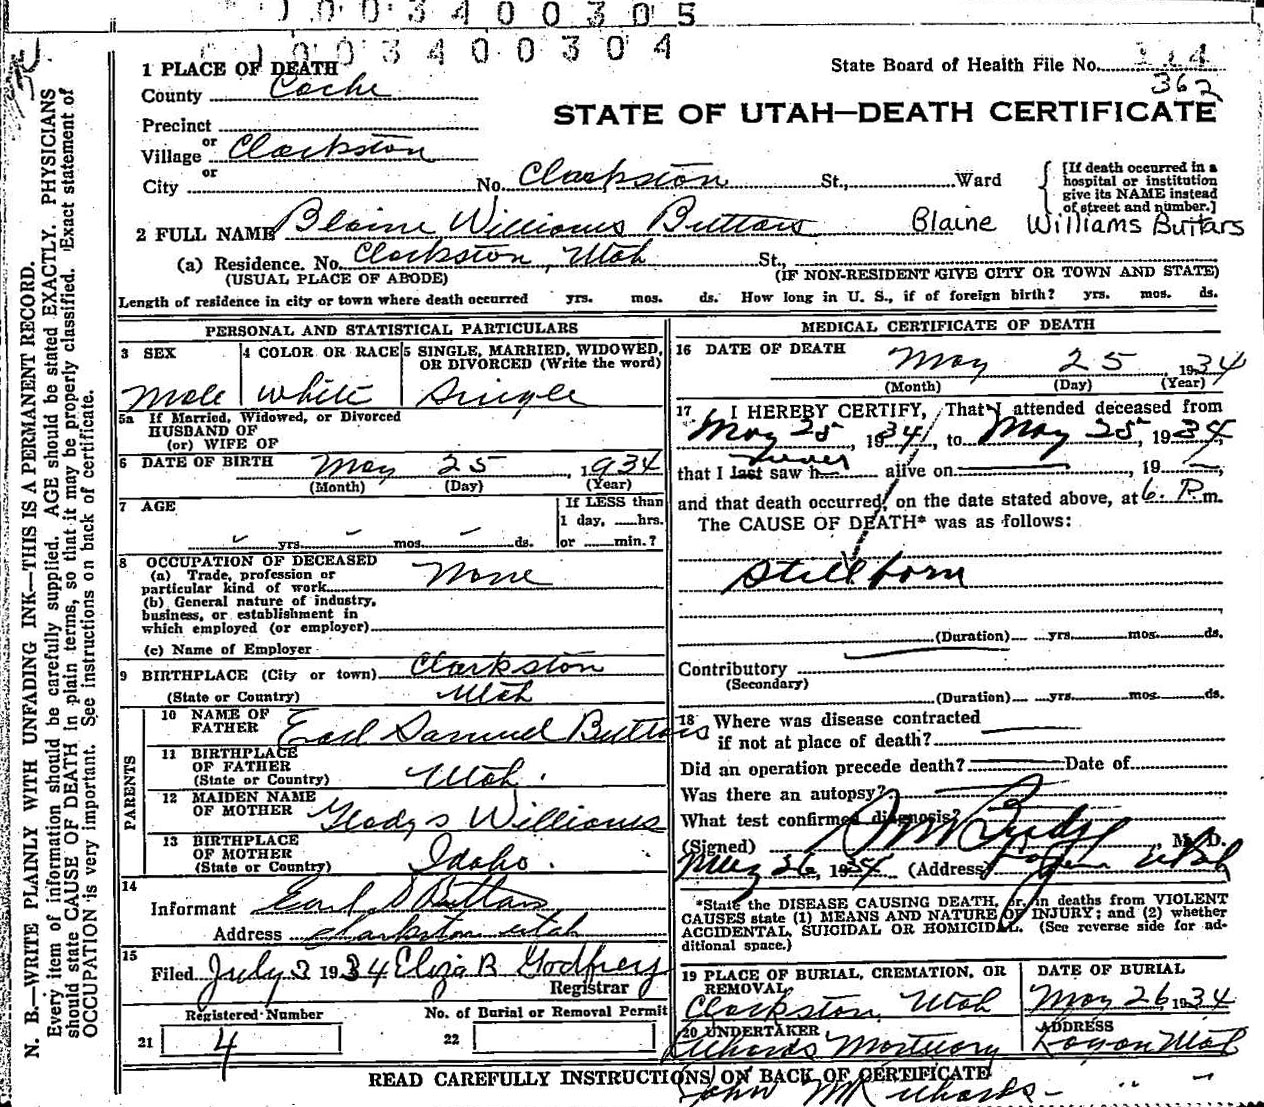 1 0 0 3 4 0 0 3 0 5
1 0 0 3 4 0 0 3 0 4
1 PLACE OF DEATH
State Board of Health File No. 114
County Cache
362
STATE OF UTAH—DEATH CERTIFICATE
Precinct
or
Village Clarkston
or
City No. Clarkston St., Ward
[If death occurred in a hospital or institution give its NAME instead of street and number.]
2 FULL NAME Blaine Williams Buttars Blaine Williams Buttars
(a) Residence. No. Clarkston, Utah St.,
(USUAL PLACE OF ABODE) (IF NON-RESIDENT GIVE CITY OR TOWN AND STATE)
Length of residence in city or town where death occurred yrs. mos. ds. How long in U. S., if of foreign birth? yrs. mos. ds.
PERSONAL AND STATISTICAL PARTICULARS
3 SEX 4 COLOR OR RACE 5 SINGLE, MARRIED, WIDOWED, OR DIVORCED (Write the word)
Male White Single
5a If Married, Widowed, or Divorced
HUSBAND OF
(or) WIFE OF
6 DATE OF BIRTH May 25, 1934
(Month) (Day) (Year)
7 AGE
If LESS than
1 day, hrs.
yrs. mos. ds. or min.?
8 OCCUPATION OF DECEASED
(a) Trade, profession or
particular kind of work None
(b) General nature of industry,
business, or establishment in
which employed (or employer)
(c) Name of Employer
9 BIRTHPLACE (City or town) Clarkston
(State or Country) Utah
PARENTS
10 NAME OF
FATHER Earl Samuel Buttars
11 BIRTHPLACE
OF FATHER
(State or Country) Utah.
12 MAIDEN NAME
OF MOTHER Gladys Williams
13 BIRTHPLACE
OF MOTHER
(State or Country) Idaho.
14
Informant Earl S Buttars
Address Clarkston Utah
15
Filed July 3 1934 Eliza B Godfrey
Registrar
Registered Number No. of Burial or Removal Permit
21 4 22
MEDICAL CERTIFICATE OF DEATH
16 DATE OF DEATH May 25 1934
(Month) (Day) (Year)
17 I HEREBY CERTIFY, That I attended deceased from
May 25, 1934, to May 25, 1934,
never
that I last saw h alive on , 19 ,
and that death occurred, on the date stated above, at 6. P.m.
The CAUSE OF DEATH* was as follows:
Still born
(Duration) yrs. mos. ds.
Contributory
(Secondary)
(Duration) yrs. mos. ds.
18 Where was disease contracted
if not at place of death?
Did an operation precede death? Date of
Was there an autopsy?
What test confirmed diagnosis?
(Signed) M. D.
May 26, 1934 (Address Logan Utah
*State the DISEASE CAUSING DEATH, or, in deaths from VIOLENT
CAUSES state (1) MEANS AND NATURE OF INJURY; and (2) whether
ACCIDENTAL, SUICIDAL OR HOMICIDAL. (See reverse side for ad-
ditional space.)
19 PLACE OF BURIAL, CREMATION, OR
REMOVAL
Clarkston, Utah
DATE OF BURIAL
May 26 1934
20 UNDERTAKER
Richards Mortuary
ADDRESS
Logan Utah
READ CAREFULLY INSTRUCTIONS ON BACK OF CERTIFICATE
John M Richards " "
N. B.—WRITE PLAINLY WITH UNFADING INK—THIS IS A PERMANENT RECORD.
Every item of information should be carefully supplied. AGE should be stated EXACTLY. PHYSICIANS
should state CAUSE OF DEATH in plain terms, so that it may be properly classified. Exact statement of
OCCUPATION is very important. See instructions on back of certificate.